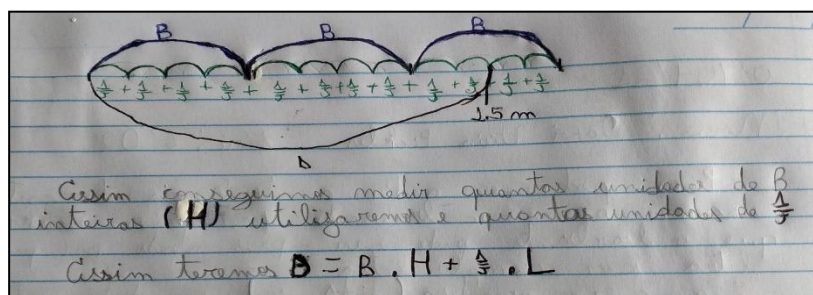 B B B
1/5 + 1/5 + 1/5 + 1/5 + 1/5 + 1/5 + 1/5 + 1/5 + 1/5 + 1/5 + 1/5 + 1/5
1.5 m
D
Assim conseguimos medir quantas unidades de B
inteiras (H) utilizaremos e quantas unidades de 1/5
Assim teremos D = B . H + 1/5 . L